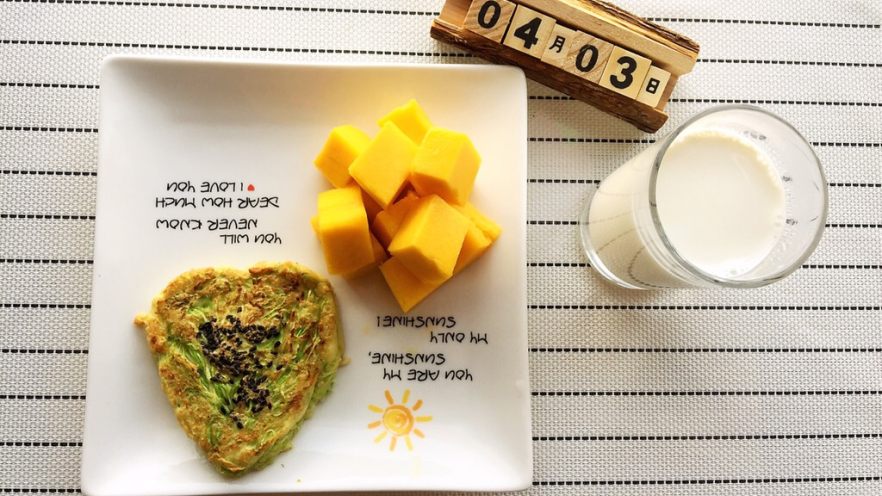 04月03日
YOU ARE MY
SUNSHINE,
MY ONLY
SUNSHINE!
YOU WILL
NEVER KNOW
DEAR HOW MUCH
I LOVE YOU